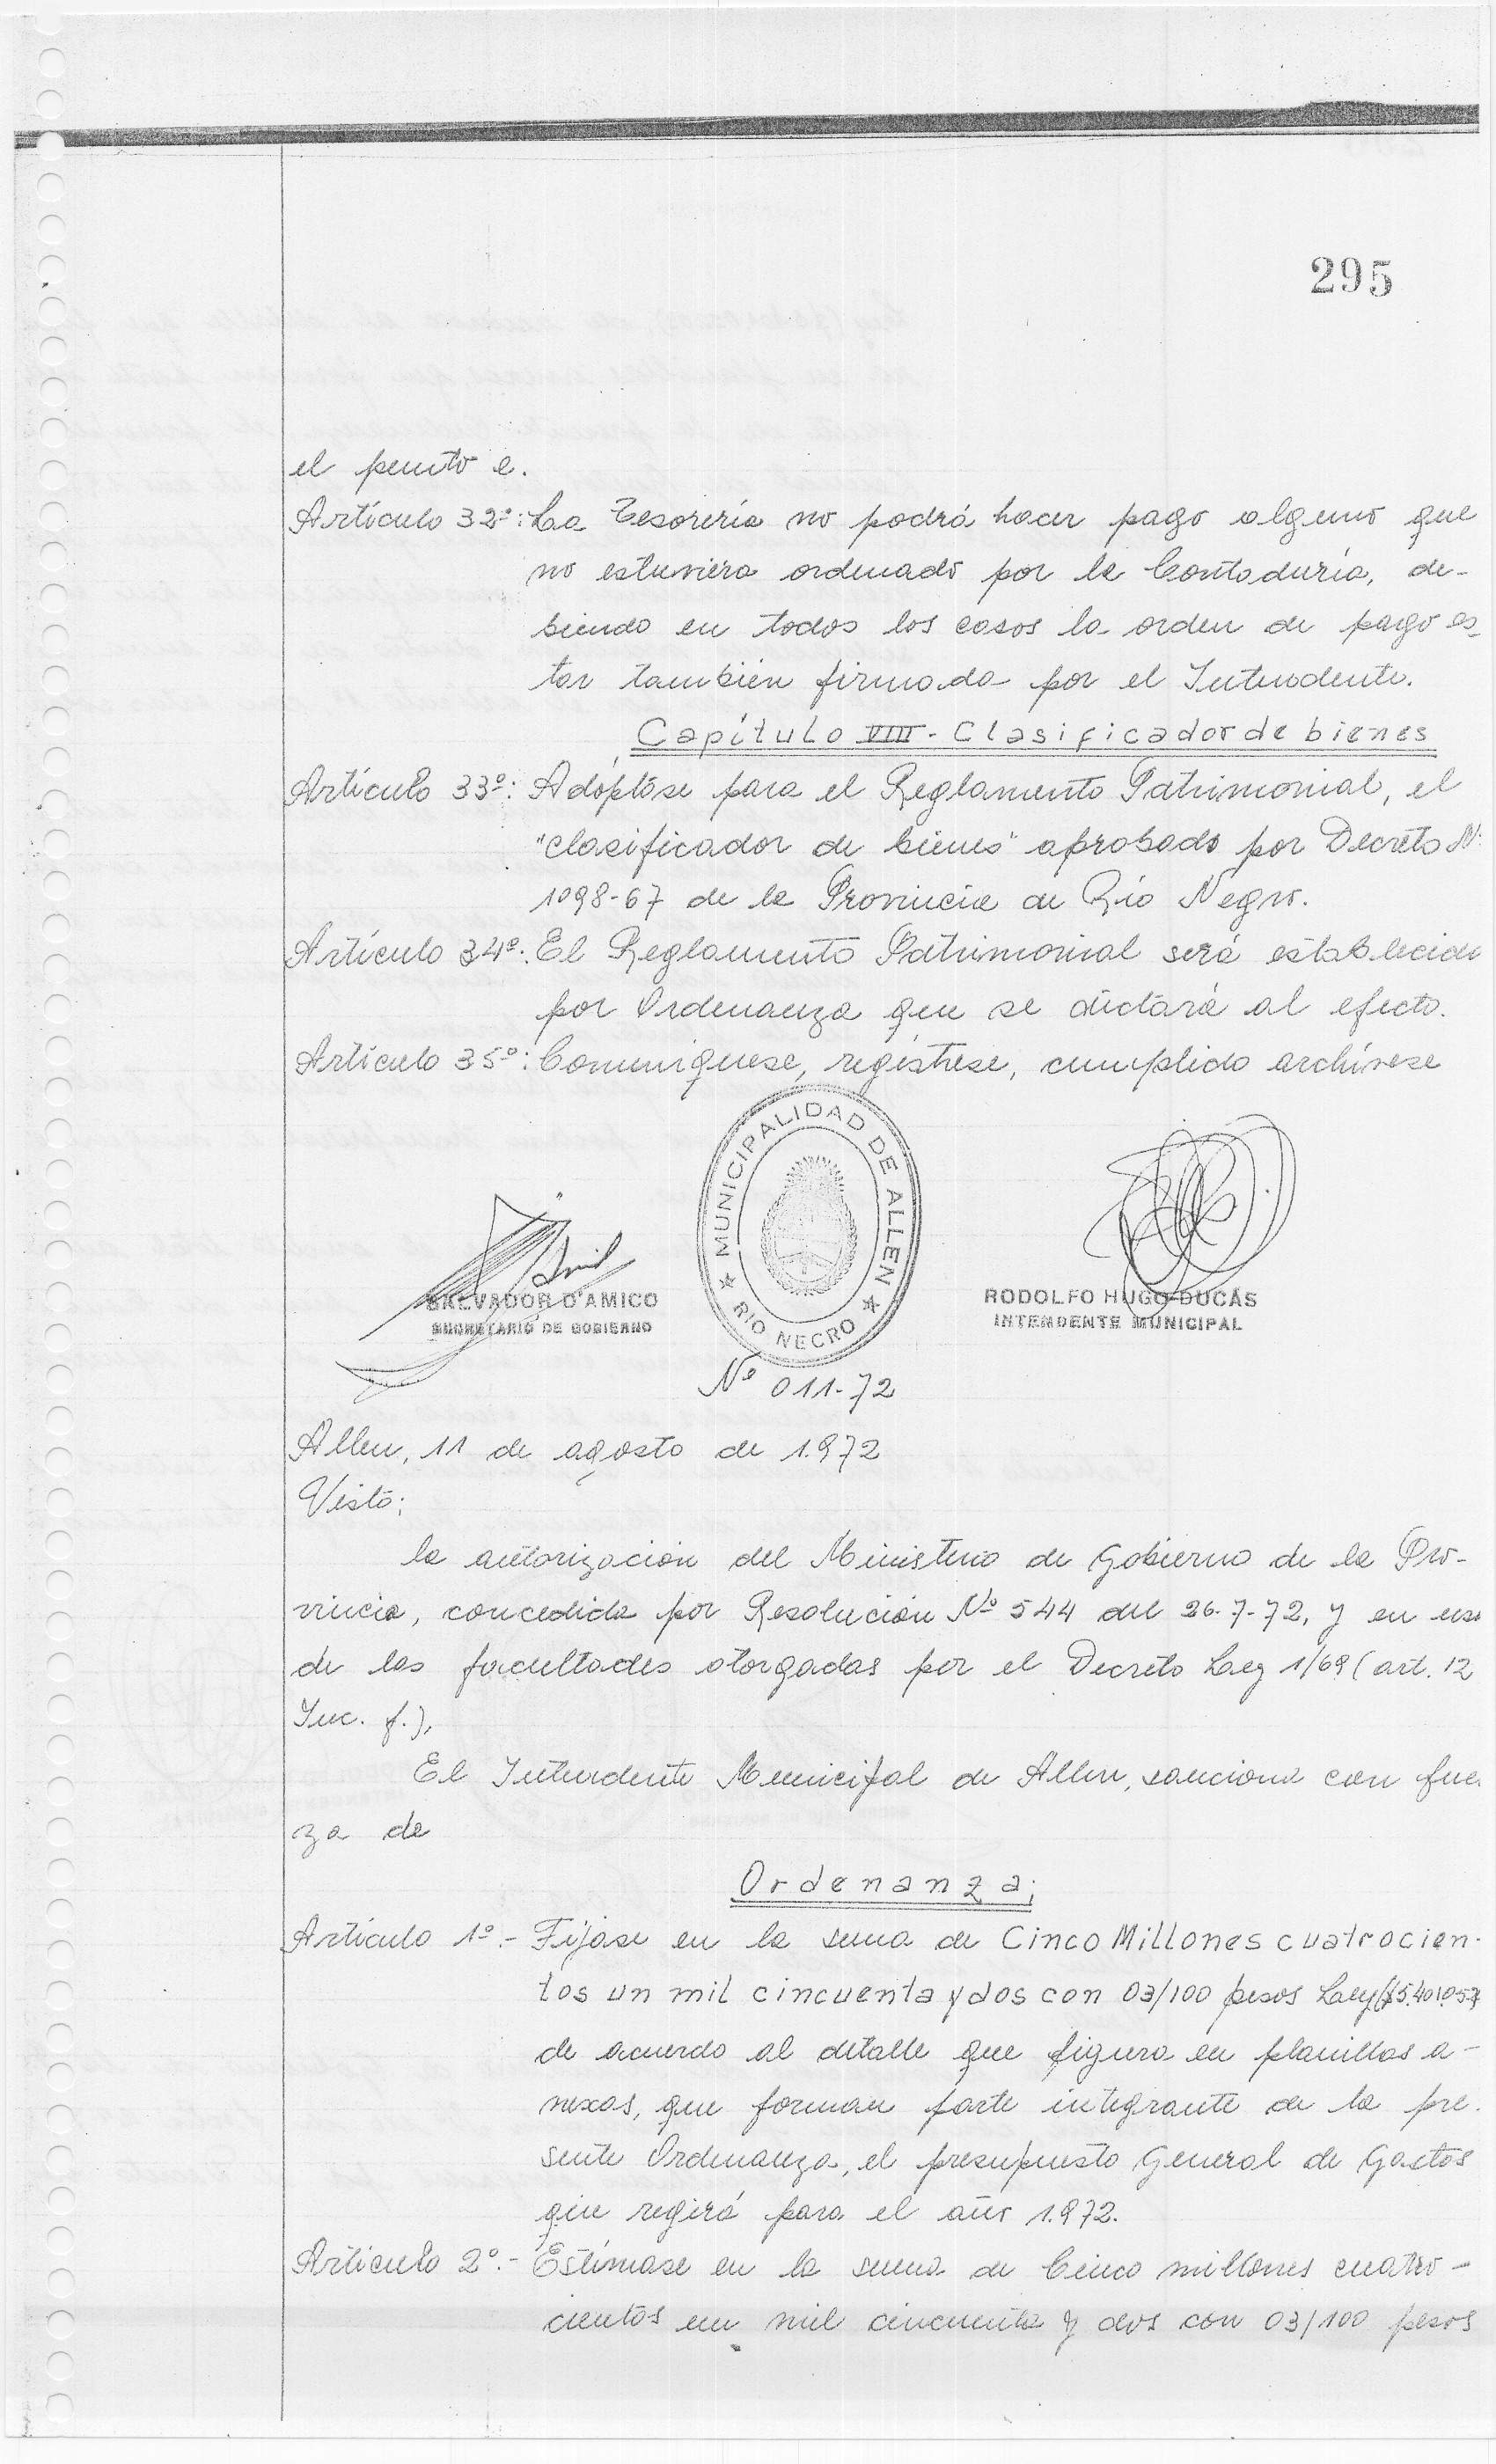 295
el punto e.
Artículo 32º: La Tesorería no podrá hacer pago alguno que
no estuviera ordenado por la Contaduría, de-
biendo en todos los casos la orden de pago es_
tar también firmada por el Intendente.
Capítulo VIII - Clasificador de bienes
Artículo 33º: Adóptase para el Reglamento Patrimonial, el
"clasificador de bienes" aprobado por Decreto Nº
1098-67 de la Provincia de Río Negro.
Artículo 34º: El Reglamento Patrimonial será establecido
por Ordenanza que se dictará al efecto.
Artículo 35º: Comuníquese, regístrese, cumplido archívese
MUNICIPALIDAD DE ALLEN
RIO NEGRO
SALVADOR D'AMICO
SECRETARIO DE GOBIERNO
RODOLFO HUGO DUCÁS
INTENDENTE MUNICIPAL
Nº 011-72
Allen, 11 de agosto de 1.972
Visto;
la autorización del Ministerio de Gobierno de la Pro-
vincia, concedida por Resolución Nº 544 del 26-7-72, y en uso
de las facultades otorgadas por el Decreto Ley 1/69 (art. 12
Inc. f.),
El Intendente Municipal de Allen, sanciona con fuer
za de
Ordenanza;
Artículo 1º.- Fíjase en la suma de Cinco Millones cuatrocien-
tos un mil cincuenta y dos con 03/100 pesos Ley ($5.401.052
de acuerdo al detalle que figura en planillas a-
nexas, que forman parte integrante de la pre-
sente Ordenanza, el presupuesto General de Gastos
que regirá para el año 1.972.
Artículo 2º.- Estímase en la suma de Cinco millones cuatro-
cientos un mil cincuenta y dos con 03/100 pesos